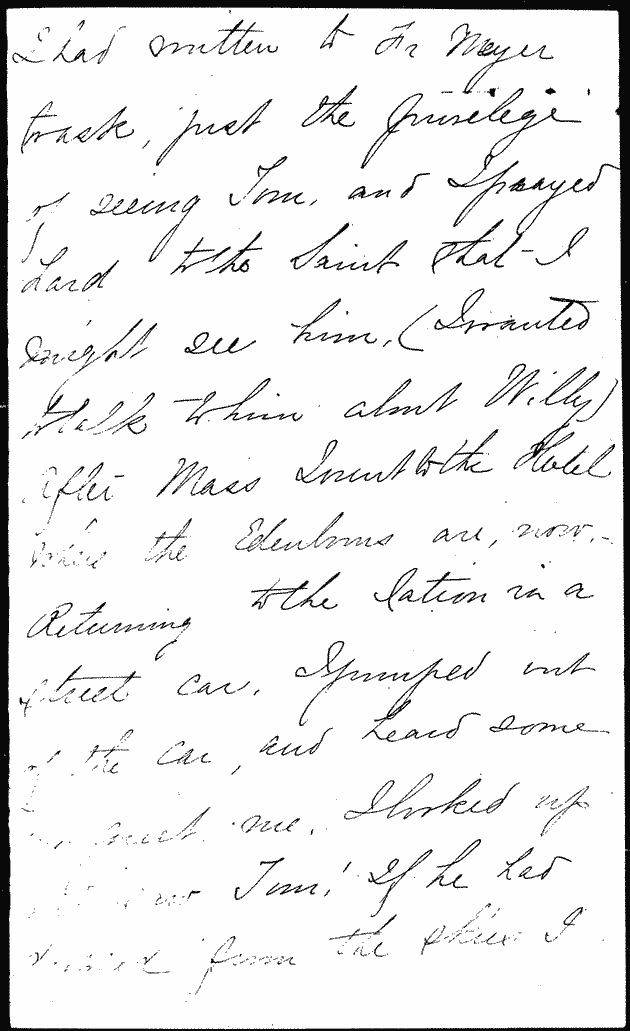 I had written to Fr Meyer
to ask, just the privilege
of seeing Tom, and I prayed
hard to the Saint that I
might see him, (I wanted
to talk to him about Willy)
After Mass I went to the Hotel
where the Edenborns are, now.
Returning to the Station in a
street car. I jumped out
of the car, and heard some
greet me. I looked up
saw Tom! If he had
from the skies I